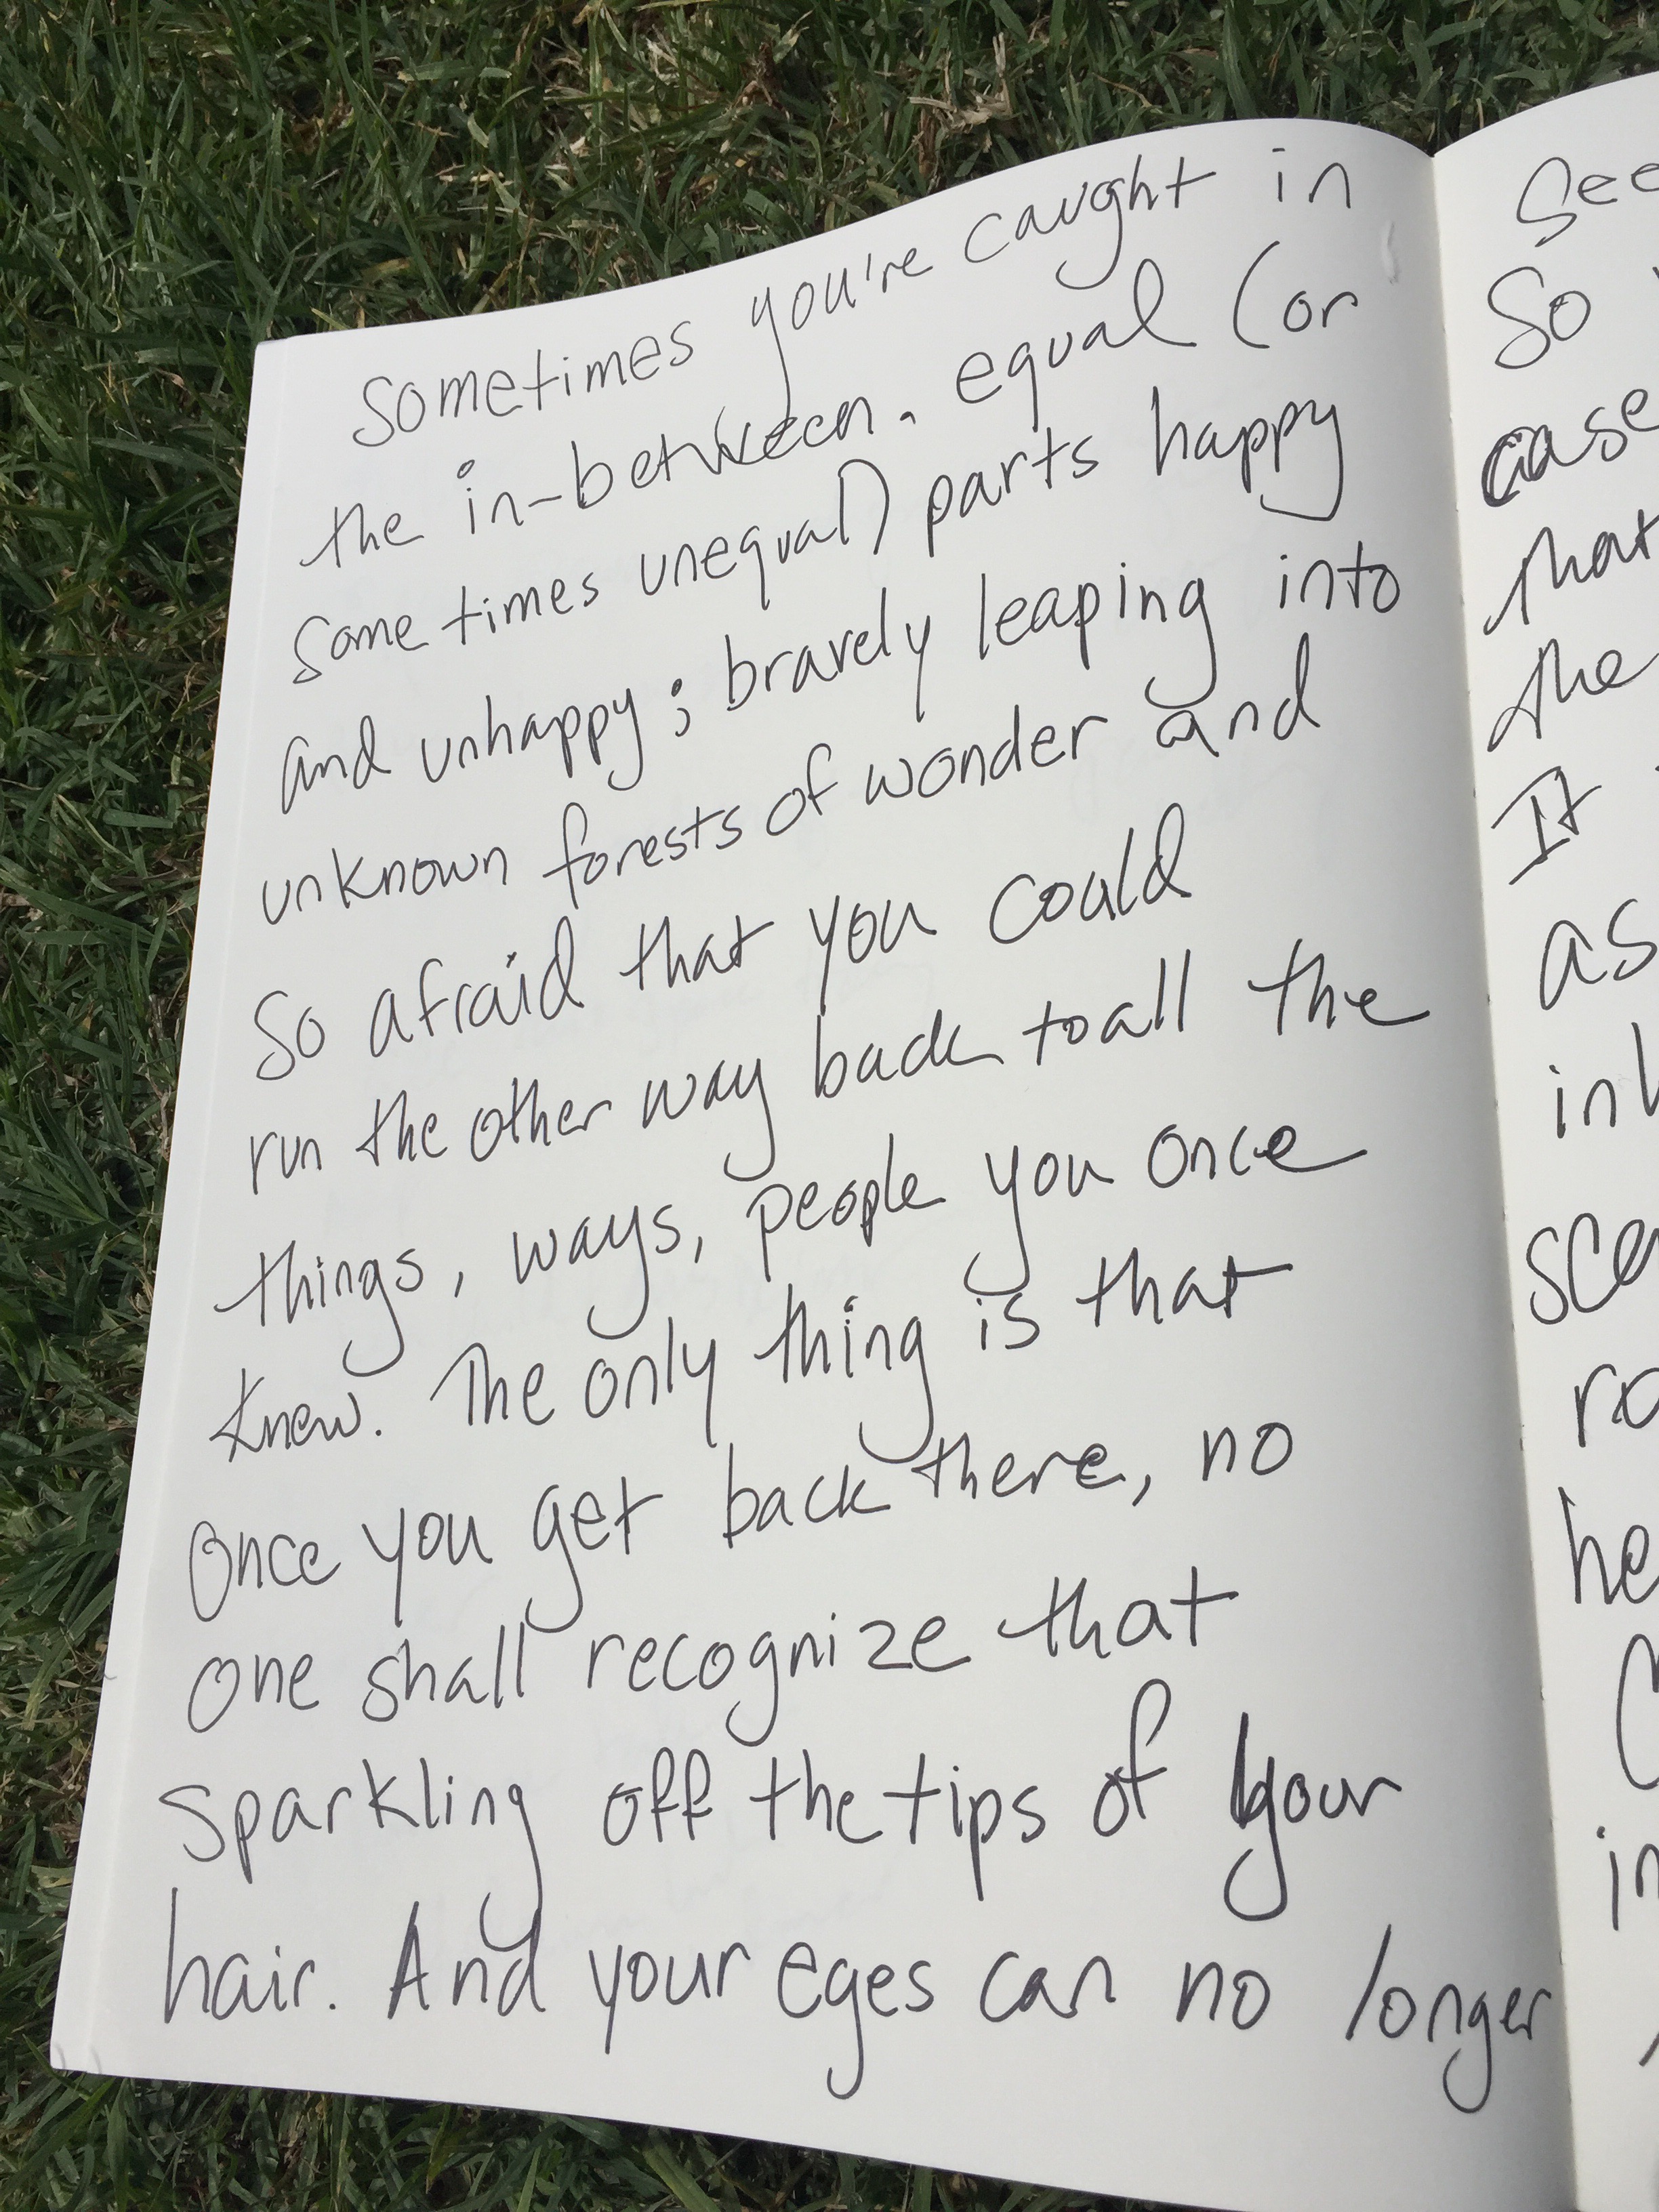 Sometimes you're caught in
the in-between. equal (or
sometimes unequal) parts happy
and unhappy; bravely leaping into
unknown forests of wonder and
so afraid that you could
run the other way back to all the
things, ways, people you once
knew. The only thing is that
once you get back there, no
one shall recognize that
sparkling off the tips of your
hair. And your eyes can no longer
See
So
case
that
the
It
as